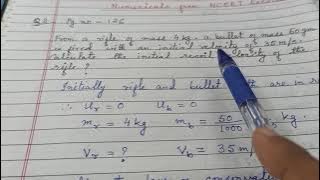 Numericals from NCERT
Pg no - 126
From a rifle of mass 4 kg, a bullet of mass 50 gm
is fired with an initial velocity of 35 m/s.
Calculate the initial recoil velocity of the
rifle?
Initially rifle and bullet are in
∴ u r = 0 u b = 0
m r = 4 kg m b = 50/1000 kg
V r = ? V b = 35 m/
law of conservation